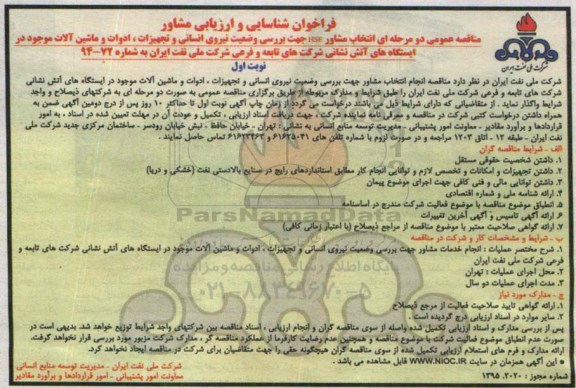 فراخوان شناسایی و ارزیابی مشاور
مناقصه عمومی دو مرحله ای انتخاب مشاور HSE جهت بررسی وضعیت نیروی انسانی و تجهیزات ، ادوات و ماشین آلات موجود در
ایستگاه های آتش نشانی شرکت های تابعه و فرعی شرکت ملی نفت ایران به شماره ۷۲-۹۴
نوبت اول
شرکت ملی نفت ایران
شرکت ملی نفت ایران در نظر دارد مناقصه انجام انتخاب مشاور جهت بررسی وضعیت نیروی انسانی و تجهیزات ، ادوات و ماشین آلات موجود در ایستگاه های آتش نشانی
شرکت های تابعه و فرعی شرکت ملی نفت ایران را طبق شرایط و مدارک مربوطه از طریق برگزاری مناقصه عمومی به صورت دو مرحله ای به شرکتهای ذیصلاح و واجد
شرایط واگذار نماید . از متقاضیانی که دارای شرایط ذیل می باشند درخواست می گردد از زمان چاپ آگهی نوبت اول تا حداکثر ۱۰ روز پس از درج دومین آگهی ضمن به
همراه داشتن درخواست کتبی شرکت در مناقصه و معرفی نامه نماینده شرکت ، جهت دریافت اسناد ارزیابی ، تکمیل و عودت آن در مهلت تعیین شده در اسناد ، به امور
قراردادها و برآورد مقادیر - معاونت امور پشتیبانی - مدیریت توسعه منابع انسانی به نشانی : تهران - خیابان حافظ - نبش خیابان رودسر - ساختمان مرکزی جدید شرکت ملی
نفت ایران - طبقه ۱۲ - اتاق ۱۲۰۳ مراجعه و در صورت لزوم با شماره تلفن های ۶۱۶۲۵۰۳۱ و ۶۱۶۲۳۳۶۳ تماس حاصل نمایند .
الف - شرایط مناقصه گران
۱. داشتن شخصیت حقوقی مستقل
۲. داشتن تجهیزات و امکانات و تخصص لازم و توانایی انجام کار مطابق استانداردهای رایج در صنایع بالادستی نفت (خشکی و دریا)
۳. داشتن توانایی مالی و فنی کافی جهت اجرای موضوع پیمان
۴. ارائه شناسه ملی و شماره اقتصادی
۵. انطباق موضوع مناقصه با موضوع فعالیت شرکت مندرج در اساسنامه
۶. ارائه آگهی تاسیس و آگهی آخرین تغییرات
۷. ارائه گواهی صلاحیت معتبر با موضوع مناقصه از مراجع ذیصلاح (با اعتبار زمانی کافی)
ب - شرایط و مشخصات کار و شرکت در مناقصه
۱. شرح مختصر عملیات : انجام خدمات مشاور جهت بررسی وضعیت نیروی انسانی و تجهیزات ، ادوات و ماشین آلات موجود در ایستگاه های آتش نشانی شرکت های تابعه و
فرعی شرکت ملی نفت ایران
۲. محل اجرای عملیات : تهران
۳. مدت اجرای عملیات دو سال
ج - مدارک مورد نیاز
۱. ارائه گواهی تایید صلاحیت فعالیت از مرجع ذیصلاح
۲. سایر موارد در اسناد ارزیابی درج گردیده است .
پس از بررسی مدارک و اسناد ارزیابی تکمیل شده واصله از سوی مناقصه گران و انجام ارزیابی ، اسناد مناقصه بین شرکتهای واجد شرایط توزیع خواهد شد. بدیهی است در
صورت عدم انطباق موضوع فعالیت شرکت با موضوع مناقصه و همچنین عدم رضایت کارفرما از عملکرد مناقصه گر ، مدارک شرکت مزبور مورد بررسی قرار نخواهد گرفت.
ارائه مدارک و فرم های استعلام ارزیابی تکمیل شده از سوی مناقصه گران هیچگونه حقی را جهت متقاضیان برای شرکت در مناقصه ایجاد نخواهد کرد.
• این آگهی همزمان در سایت WWW.NIOC.IR قابل مشاهده می باشد .
شرکت ملی نفت ایران - مدیریت توسعه منابع انسانی
معاونت امور پشتیبانی - امور قراردادها و برآورد مقادیر
شماره مجوز : ۱۳۹۵،۲۰۲۰
ParsNamadData
پایگاه اطلاع رسانی مناقصه و مزایده
۰۲۱-۸۸۳۴۹۶۷۰-۵